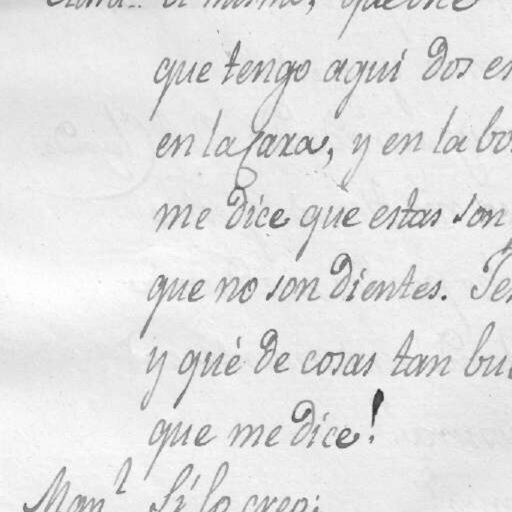 que tengo aqui dos
en la Cara, y en la
me dice que estas son
que no son dientes.
y qué de cosas tan
que me dice!
Man.l Sí lo creo;